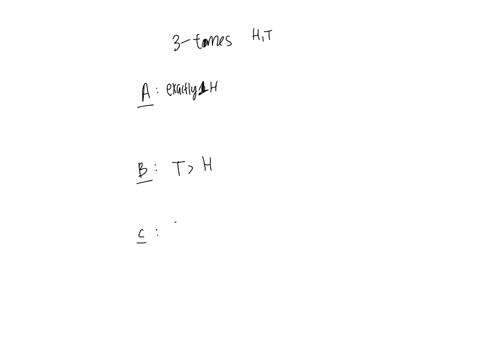 3-times H,T
A: exactly 1 H
B: T > H
C: